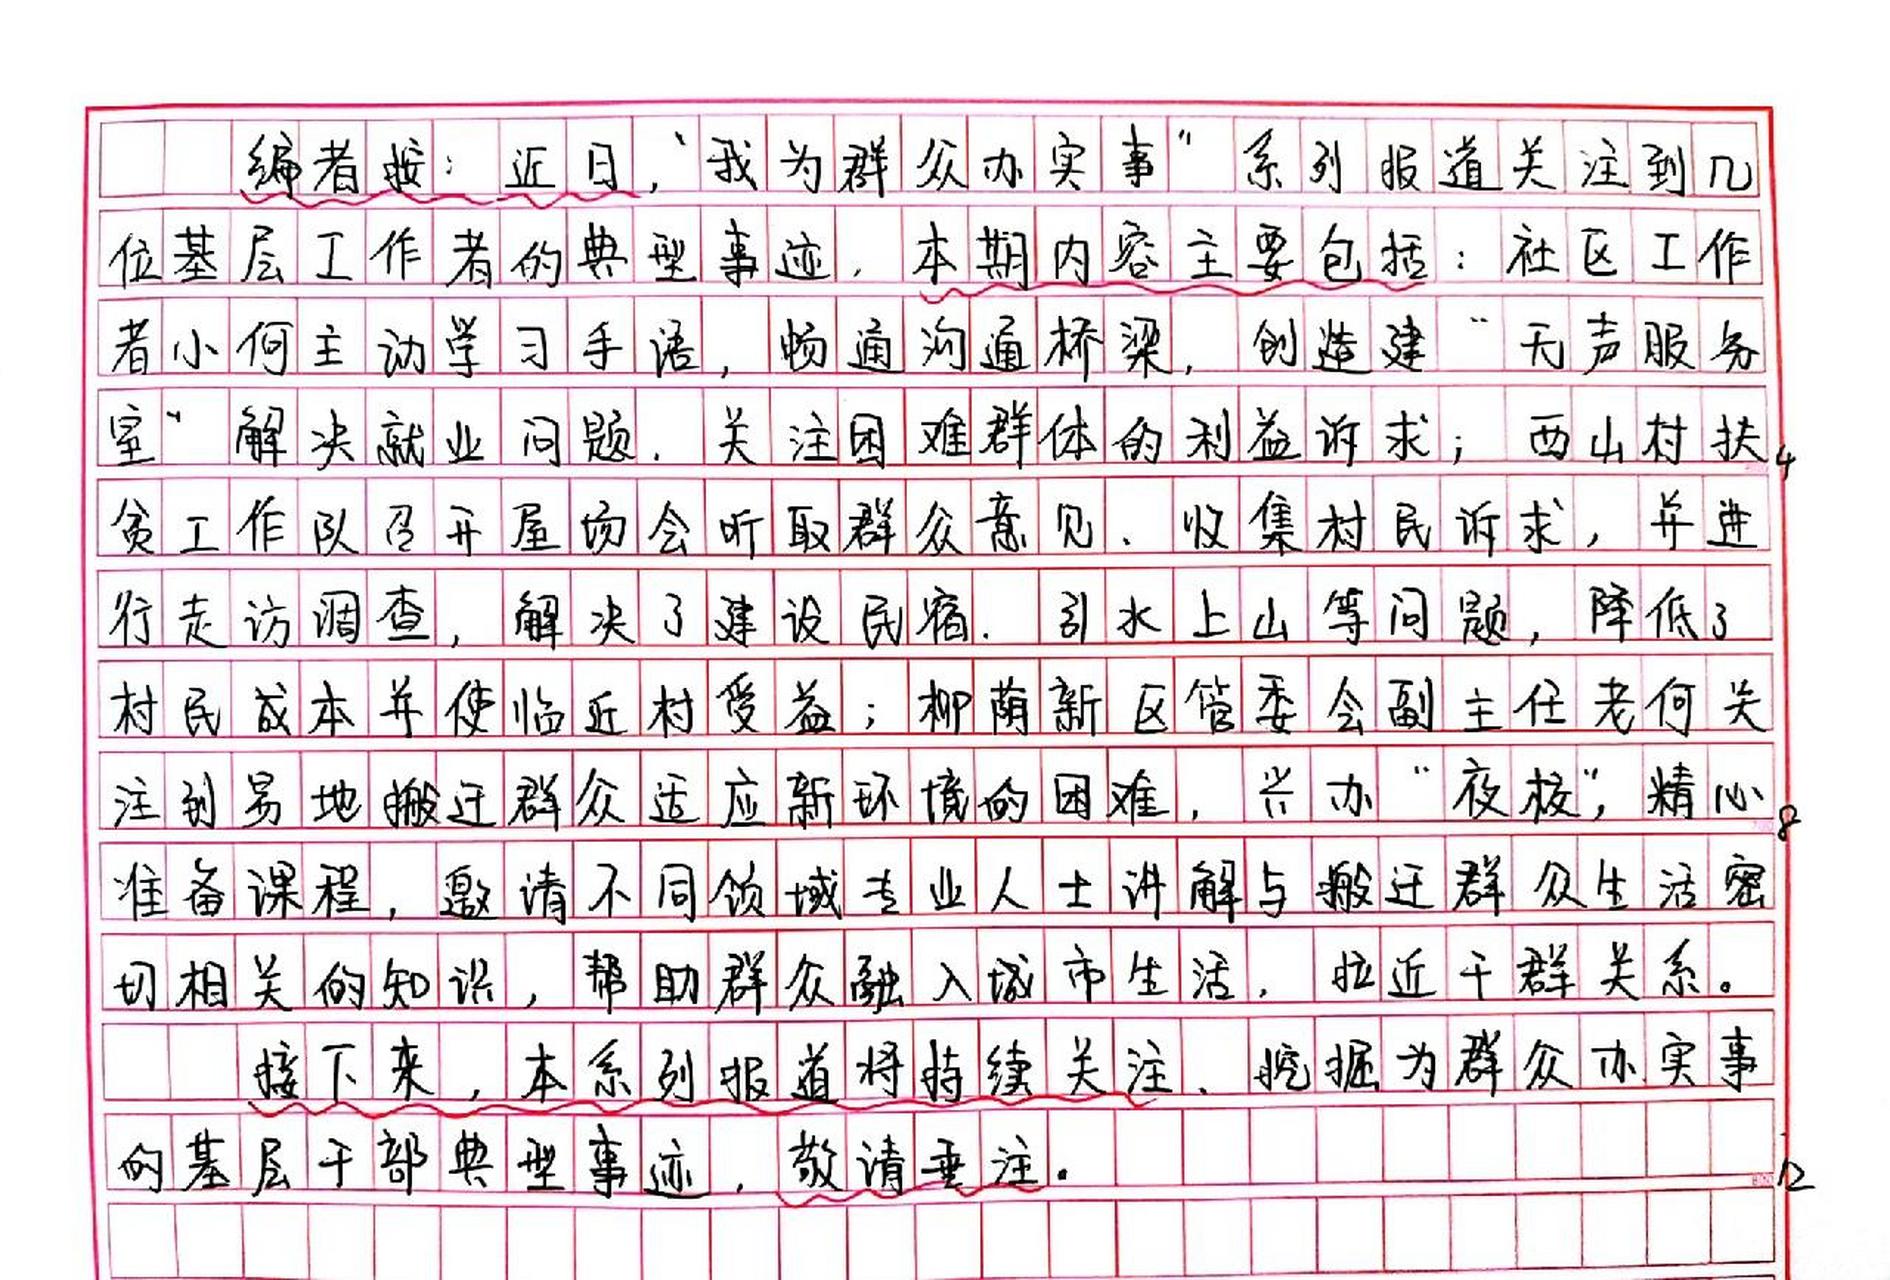 编者按：近日，“我为群众办实事”系列报道关注到几
位基层工作者的典型事迹，本期内容主要包括：社区工作
者小何主动学习手语，畅通沟通桥梁，创造建“无声服务
室”解决就业问题，关注困难群体的利益诉求；西山村扶 4
贫工作队召开屋场会听取群众意见、收集村民诉求，并进
行走访调查，解决了建设民宿、引水上山等问题，降低了
村民成本并使临近村受益；柳荫新区管委会副主任老何关
注到易地搬迁群众适应新环境的困难，兴办“夜校”，精心 8
准备课程，邀请不同领域专业人士讲解与搬迁群众生活密
切相关的知识，帮助群众融入城市生活，拉近干群关系。
接下来，本系列报道将持续关注、挖掘为群众办实事
的基层干部典型事迹，敬请垂注。 12